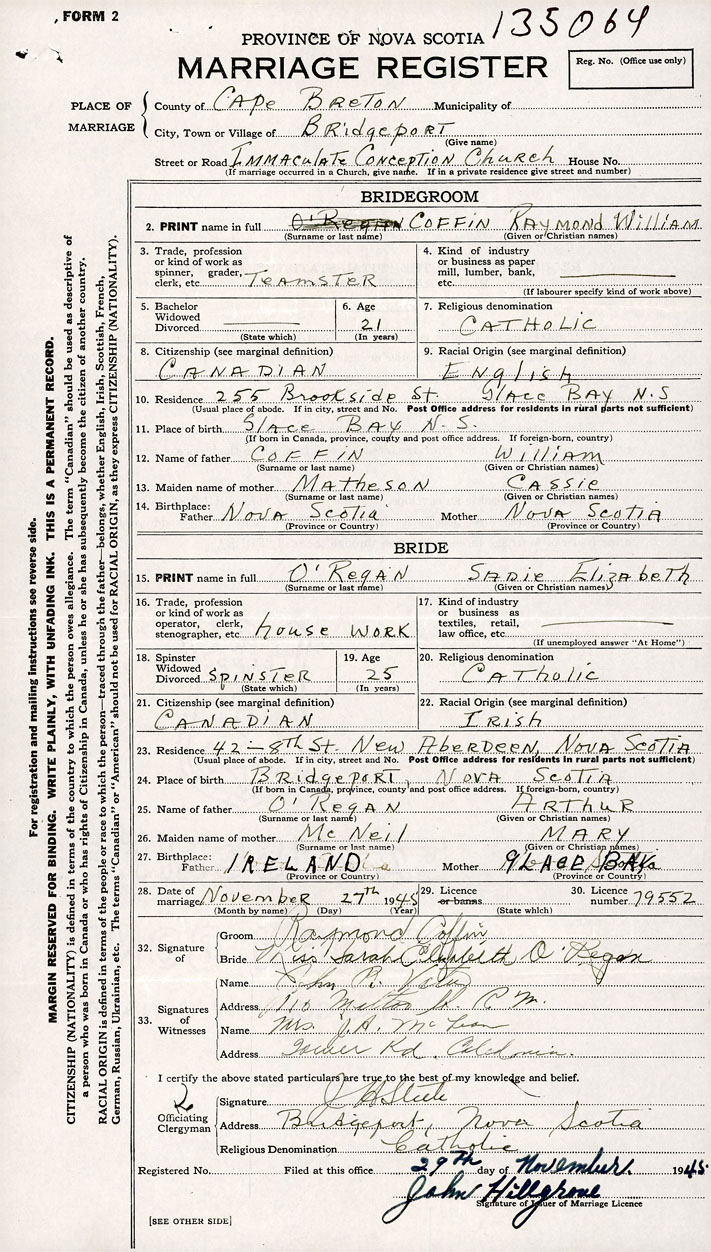 FORM 2
135064
PROVINCE OF NOVA SCOTIA
MARRIAGE REGISTER
Reg. No. (Office use only)
PLACE OF MARRIAGE
County of CAPE BRETON Municipality of
City, Town or Village of BRIDGEPORT
(Give name)
Street or Road IMMACULATE CONCEPTION CHURCH House No.
(If marriage occurred in a Church, give name. If in a private residence give street and number)
BRIDEGROOM
2. PRINT name in full O'REGAN COFFIN RAYMOND WILLIAM
(Surname or last name) (Given or Christian names)
3. Trade, profession or kind of work as spinner, grader, clerk, etc. TEAMSTER
4. Kind of industry or business as paper mill, lumber, bank, etc.
(If labourer specify kind of work above)
5. Bachelor Widowed Divorced
(State which)
6. Age 21
(In years)
7. Religious denomination CATHOLIC
8. Citizenship (see marginal definition) CANADIAN
9. Racial Origin (see marginal definition) ENGLISH
10. Residence 255 Brookside St. GLACE BAY N.S
(Usual place of abode. If in city, street and No. Post Office address for residents in rural parts not sufficient)
11. Place of birth GLACE BAY N.S.
(If born in Canada, province, county and post office address. If foreign-born, country)
12. Name of father COFFIN William
(Surname or last name) (Given or Christian names)
13. Maiden name of mother MATHESON CASSIE
(Surname or last name) (Given or Christian names)
14. Birthplace: Father NOVA SCOTIA Mother NOVA SCOTIA
(Province or Country) (Province or Country)
BRIDE
15. PRINT name in full O'REGAN SADIE ELIZABETH
(Surname or last name) (Given or Christian names)
16. Trade, profession or kind of work as operator, clerk, stenographer, etc. house WORK
17. Kind of industry or business as textiles, retail, law office, etc.
(If unemployed answer "At Home")
18. Spinster Widowed Divorced SPINSTER
(State which)
19. Age 25
(In years)
20. Religious denomination CATHOLIC
21. Citizenship (see marginal definition) CANADIAN
22. Racial Origin (see marginal definition) IRISH
23. Residence 42-8th St. New Aberdeen, NOVA SCOTIA
(Usual place of abode. If in city, street and No. Post Office address for residents in rural parts not sufficient)
24. Place of birth Bridgeport, NOVA SCOTIA
(If born in Canada, province, county and post office address. If foreign-born, country)
25. Name of father O'REGAN ARTHUR
(Surname or last name) (Given or Christian names)
26. Maiden name of mother McNeil MARY
(Surname or last name) (Given or Christian names)
27. Birthplace: Father IRELAND Mother GLACE BAY
(Province or Country) (Province or Country)
28. Date of marriage November 27th 1945
(Month by name) (Day) (Year)
29. Licence or banns
(State which)
30. Licence number 79552
32. Signature of
Groom Raymond Coffin
Bride Miss Sarah Elizabeth O'Regan
33. Signatures of Witnesses
Name John R.
Address 110 St. C.M.
Name Mrs. J.A. McLean
Address Tower Rd.
I certify the above stated particulars are true to the best of my knowledge and belief.
Officiating Clergyman
Signature
Address Bridgeport, Nova Scotia
Religious Denomination Catholic
Registered No. Filed at this office 29th day of November 1945
John Hillgrove
Signature of Issuer of Marriage Licence
[SEE OTHER SIDE]
For registration and mailing instructions see reverse side.
MARGIN RESERVED FOR BINDING. WRITE PLAINLY, WITH UNFADING INK. THIS IS A PERMANENT RECORD.
CITIZENSHIP (NATIONALITY) is defined in terms of the country to which the person owes allegiance. The term "Canadian" should be used as descriptive of
a person who was born in Canada or who has rights of Citizenship in Canada, unless he or she has subsequently become the citizen of another country.
RACIAL ORIGIN is defined in terms of the people or race to which the person—traced through the father—belongs, whether English, Irish, Scottish, French,
German, Russian, Ukrainian, etc. The terms "Canadian" or "American" should not be used for RACIAL ORIGIN, as they express CITIZENSHIP (NATIONALITY).